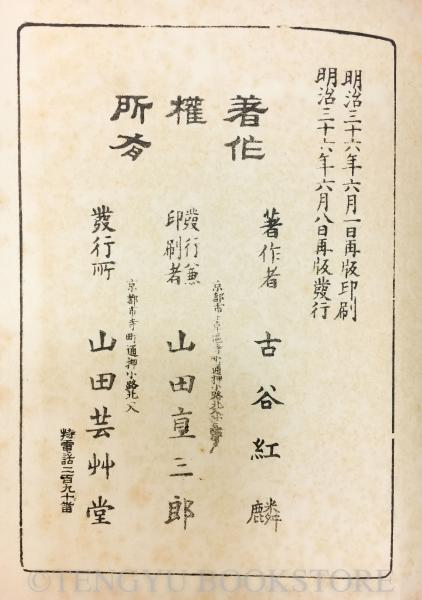 明治三十六年六月一日再版印刷
明治三十六年六月八日再版發行
著作
權
所有
著作者 古谷紅麟
京都市上京區寺町通押小路北入
發行兼印刷者 山田直三郎
京都市寺町通押小路北入
發行所 山田芸艸堂
特電話二百九十番
©TENGYU BOOKSTORE